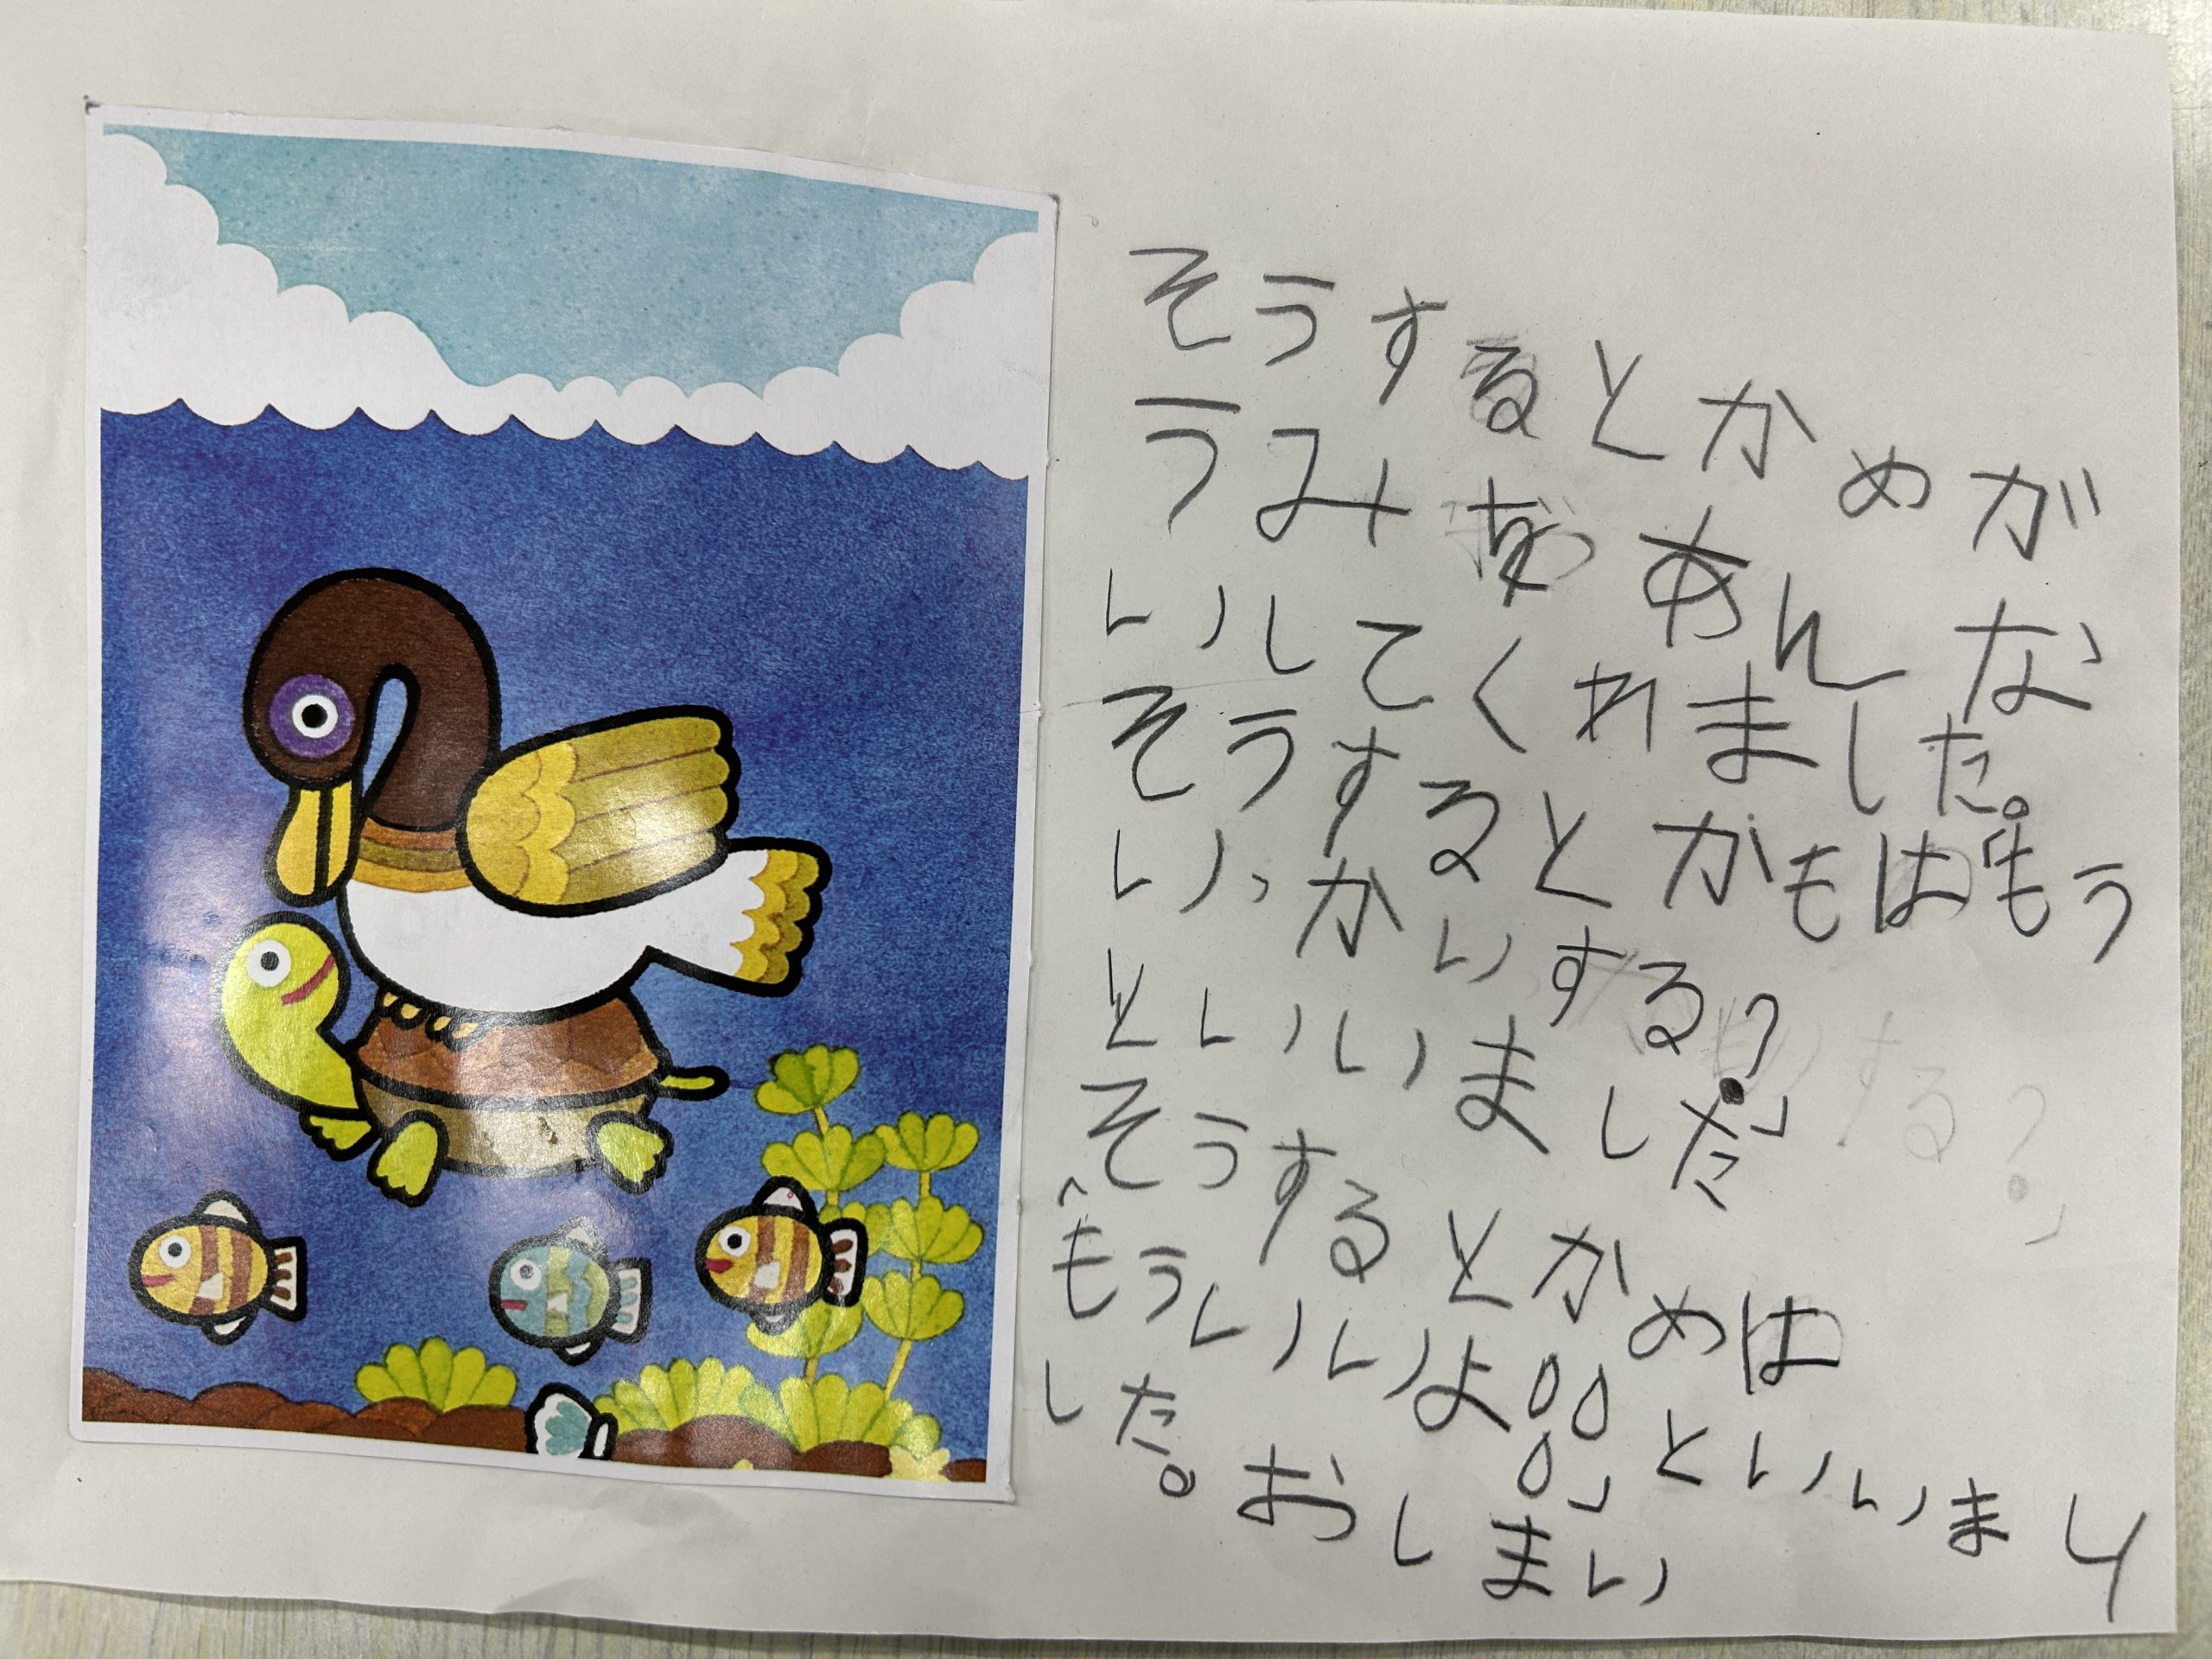 そうするとかめが
うみをあんな
いしてくれました。
そうするとかもは「もう
いっかいする?」
といいました
そうするとかめは
「もういいよ!!!」といいま
した。おしまい
4